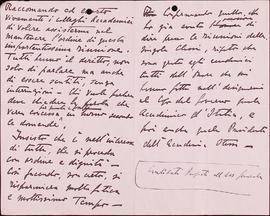 Raccomando ed esorto
vivamente i colleghi Accademici
di volere assistermi nel
mantenere l'ordine di questa
importantissima riunione.
Tutti hanno il diritto, non
solo di parlare ma anche
di essere sentiti, senza
interruzioni - Chi vuole parlare
deve chiedere la parola che
verrà concessa in modo secondo
la domanda
Insisto che è nell'interesse
di tutti, che si proceda
con ordine e dignità -
Così facendo, son certo, si
risparmierà molta fatica
e moltissimo tempo -
Confermando quello, che
ho già avuto di
dire per le riunioni delle
singole Classi, ripeto che
sono grato agli
tutti dell'onore che mi
hanno fatto nell'
il Capo del Governo quale
Accademico d'Italia, e
poi anche quale Presidente
dell'Accademia Stessa -